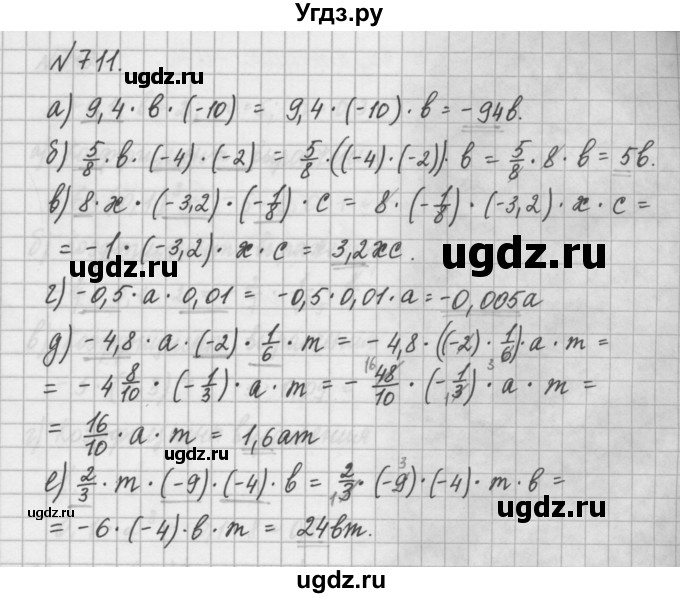 Угдз.ру
№711.
ugdz.ru
а) 9,4 · в · (-10) = 9,4 · (-10) · в = -94в.
ugdz.ru
б) 5/8 · в · (-4) · (-2) = 5/8 · ((-4) · (-2)) · в = 5/8 · 8 · в = 5в.
в) 8 · x · (-3,2) · (-1/8) · c = 8 · (-1/8) · (-3,2) · x · c =
= -1 · (-3,2) · x · c = 3,2xc.
ugdz.ru ugdz.ru
г) -0,5 · a · 0,01 = -0,5 · 0,01 · a = -0,005a
ugdz.ru
д) -4,8 · a · (-2) · 1/6 · m = -4,8 · ((-2) · 1/6) · a · m =
= -4 8/10 · (-1/3) · a · m = - 48/10 · (-1/3) · a · m =
= 16/10 · a · m = 1,6am
ugdz.ru
е) 2/3 · m · (-9) · (-4) · в = 2/3 · (-9) · (-4) · m · в =
ugdz.ru ugdz.ru
= -6 · (-4) · в · m = 24вm.
ugdz.ru
ugdz.ru